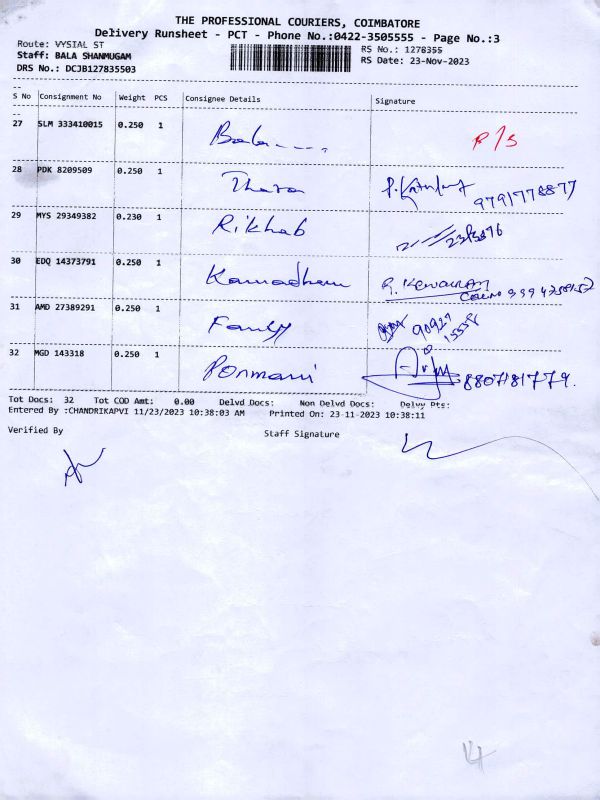 THE PROFESSIONAL COURIERS, COIMBATORE
Delivery Runsheet - PCT - Phone No.:0422-3505555 - Page No.:3
Route: VYSIAL ST RS No.: 1278355
Staff: BALA SHANMUGAM RS Date: 23-Nov-2023
DRS No.: DCJB127835503
S No Consignment No Weight PCS Consignee Details Signature
27 SLM 333410015 0.250 1 Bala---. R/S
28 PDK 8209509 0.250 1 Thara 9791778877
29 MYS 29349382 0.230 1 Rikhab
30 EDQ 14373791 0.250 1
31 AMD 27389291 0.250 1 Family 90927
15558
32 MGD 143318 0.250 1 Ponmani 8807181779.
Tot Docs: 32 Tot COD Amt: 0.00 Delvd Docs: Non Delvd Docs: Delvy Pts:
Entered By :CHANDRIKAPVI 11/23/2023 10:38:03 AM Printed On: 23-11-2023 10:38:11
Verified By Staff Signature